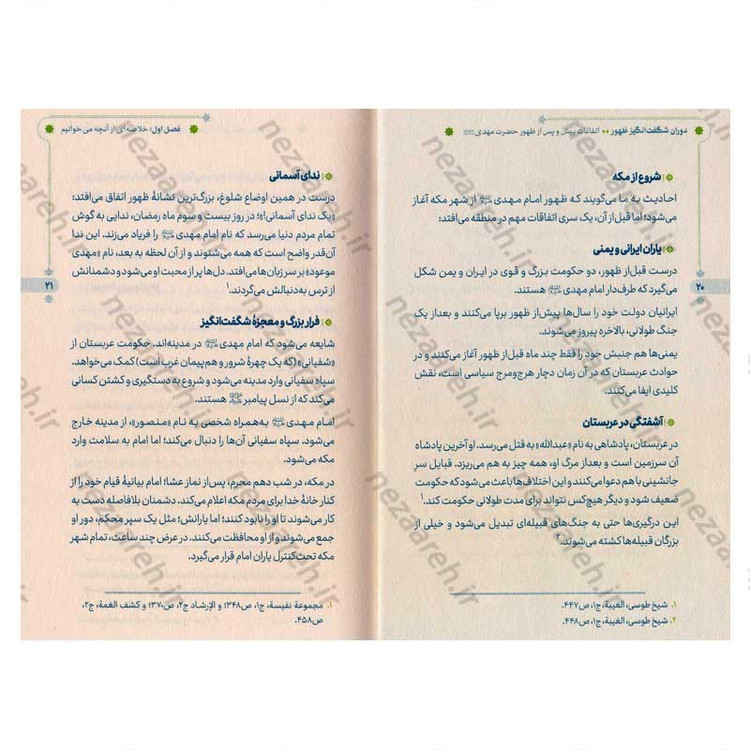 دوران شگفت‌انگیز ظهور •• اتفاقات پیش و پس از ظهور حضرت مهدی
شروع از مکه
احادیث به ما می‌گویند که ظهور امام مهدی از شهر مکه آغاز
می‌شود؛ اما قبل از آن، یک سری اتفاقات مهم در منطقه می‌افتد:
یاران ایرانی و یمنی
درست قبل از ظهور، دو حکومت بزرگ و قوی در ایران و یمن شکل
می‌گیرد که طرف‌دار امام مهدی هستند.
ایرانیان دولت خود را سال‌ها پیش‌از ظهور برپا می‌کنند و بعداز یک
جنگ طولانی، بالاخره پیروز می‌شوند.
یمنی‌ها هم جنبش خود را فقط چند ماه قبل‌از ظهور آغاز می‌کنند و در
حوادث عربستان که در آن زمان دچار هرج‌ومرج سیاسی است، نقش
کلیدی ایفا می‌کنند.
آشفتگی در عربستان
در عربستان، پادشاهی به نام «عبدالله» به قتل می‌رسد. او آخرین پادشاه
آن سرزمین است و بعداز مرگ او، همه چیز به هم می‌ریزد. قبایل سرِ
جانشینی با هم دعوا می‌کنند و این اختلاف‌ها باعث می‌شود که حکومت
ضعیف شود و دیگر هیچ‌کس نتواند برای مدت طولانی حکومت کند.۱
این درگیری‌ها حتی به جنگ‌های قبیله‌ای تبدیل می‌شود و خیلی از
بزرگان قبیله‌ها کشته می‌شوند.
۱. شیخ طوسی، الغیبة، ج۱، ص۴۴۷.
۲. شیخ طوسی، الغیبة، ج۱، ص۴۴۸.
۲۰
فصل اول: خلاصه‌ای از آنچه می‌خوانیم
ندای آسمانی
درست در همین اوضاع شلوغ، بزرگ‌ترین نشانهٔ ظهور اتفاق می‌افتد:
«یک ندای آسمانی!»؛ در روز بیست و سوم ماه رمضان، ندایی به گوش
تمام مردم دنیا می‌رسد که نام امام مهدی را فریاد می‌زند. این ندا
آن‌قدر واضح است که همه می‌شنوند و از آن لحظه به بعد، نام «مهدی
موعود» بر سر زبان‌ها می‌افتد. دل‌ها پر از محبت او می‌شود و دشمنانش
از ترس به‌دنبالش می‌گردند.۱
فرار بزرگ و معجزهٔ شگفت‌انگیز
شایعه می‌شود که امام مهدی در مدینه‌اند. حکومت عربستان از
«سفیانی» (که یک چهرهٔ شرور و هم‌پیمان غرب است) کمک می‌خواهد.
سپاه سفیانی وارد مدینه می‌شود و شروع به دستگیری و کشتن کسانی
می‌کند که از نسل پیامبر هستند.
امام مهدی به‌همراه شخصی به نام «منصور»، از مدینه خارج
می‌شود. سپاه سفیانی آن‌ها را دنبال می‌کند؛ اما امام به سلامت وارد
مکه می‌شود.
در مکه، در شب دهم محرم، پس‌از نماز عشا؛ امام بیانیهٔ قیام خود را از
کنار خانهٔ خدا برای مردم مکه اعلام می‌کند. دشمنان بلافاصله دست به
کار می‌شوند تا او را نابود کنند؛ اما یارانش؛ مثل یک سپر محکم، دور او
جمع می‌شوند و از او محافظت می‌کنند. در عرض چند ساعت، تمام شهر
مکه تحت‌کنترل یاران امام قرار می‌گیرد.
۱. مجموعة نفیسة، ج۱، ص۳۴۸؛ و الإرشاد ج۲، ص۳۷۰؛ و کشف الغمة، ج۲،
ص۴۵۸.
۲۱
nezaareh.ir
nezaareh.ir
nezaareh.ir
nezaareh.ir
nezaareh.ir
nezaareh.ir